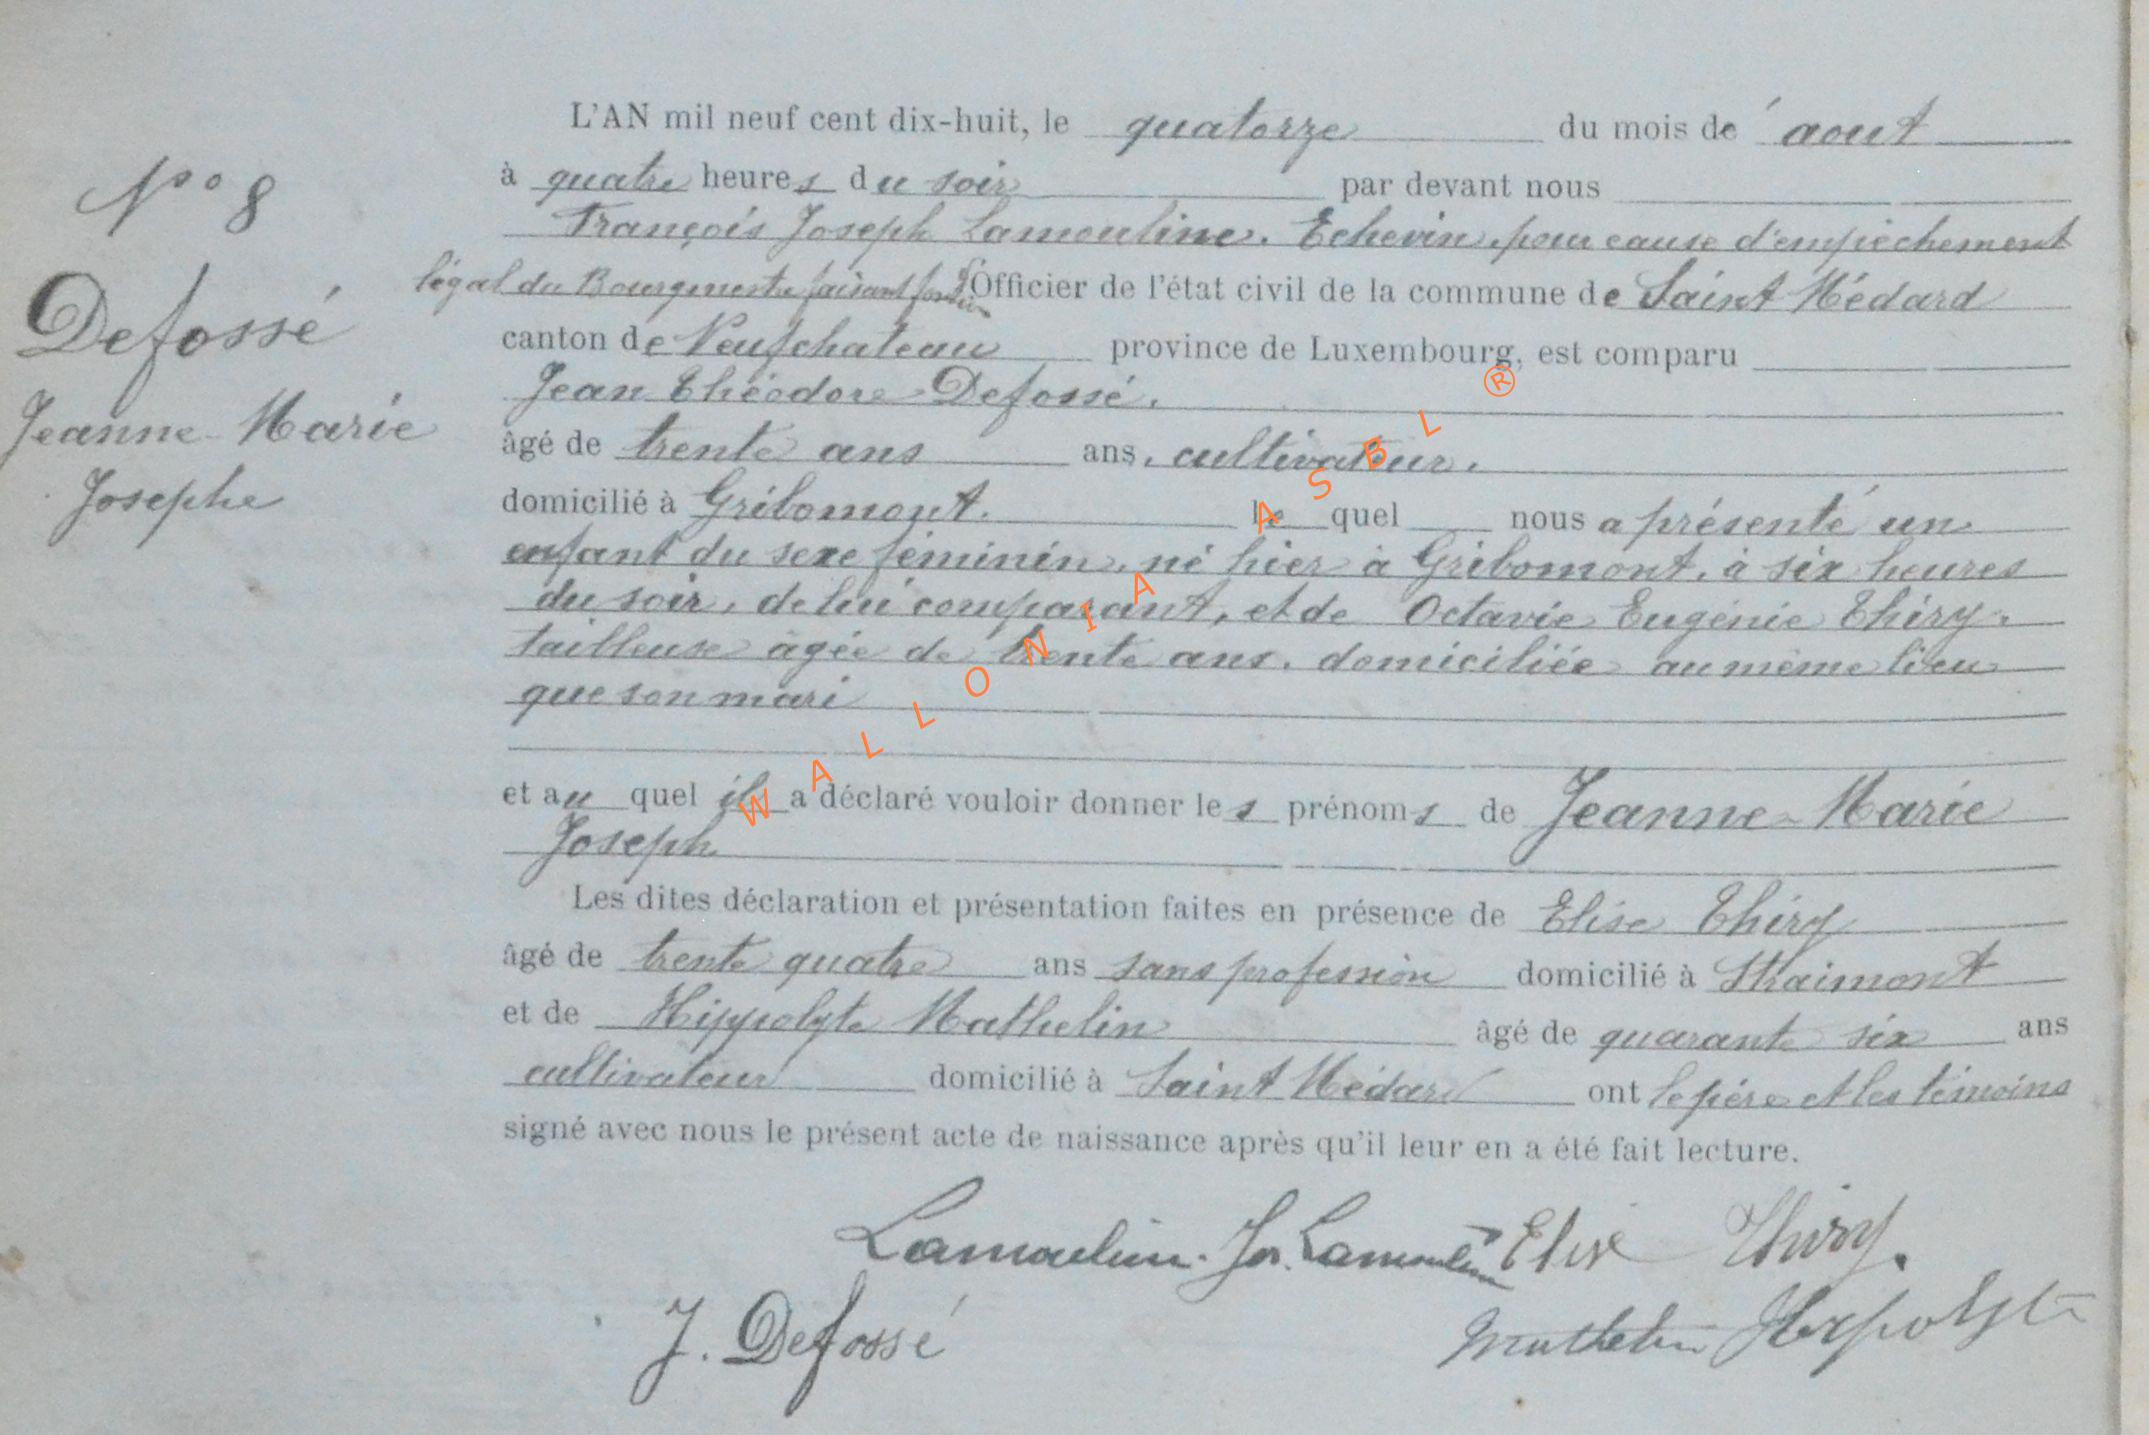 N° 8
Defossé
Jeanne-Marie
Josephe
L'AN mil neuf cent dix-huit, le quatorze du mois de aout
à quatre heures du soir par devant nous
François Joseph Lamouline. Echevin, pour cause d'empêchement
légal du Bourgmestre faisant Officier de l'état civil de la commune de Saint Médard
canton de Neufchateau province de Luxembourg, est comparu
Jean Théodore Defossé.
âgé de trente ans ans, cultivateur.
domicilié à Gribomont. le quel nous a présenté un
enfant du sexe féminin, né hier à Gribomont, à six heures
du soir, de lui comparant, et de Octavie Eugénie Thiry.
tailleuse âgée de trente ans. domiciliée au même lieu
que son mari
et au quel il a déclaré vouloir donner les prénoms de Jeanne-Marie
Joseph
Les dites déclaration et présentation faites en présence de Elise Thiry
âgé de trente quatre ans sans profession domicilié à Straimont
et de Hippolyte Mathelin âgé de quarante six ans
cultivateur domicilié à Saint Médard ont le père et les témoins
signé avec nous le présent acte de naissance après qu'il leur en a été fait lecture.
Lamouline. Jos. Lamouline Elise Thiry.
J. Defossé Mathelin Hippolyte
WALLONIA ASBL ®